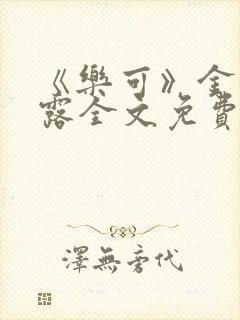 《樂可》金
露全文免費
澤無旁代